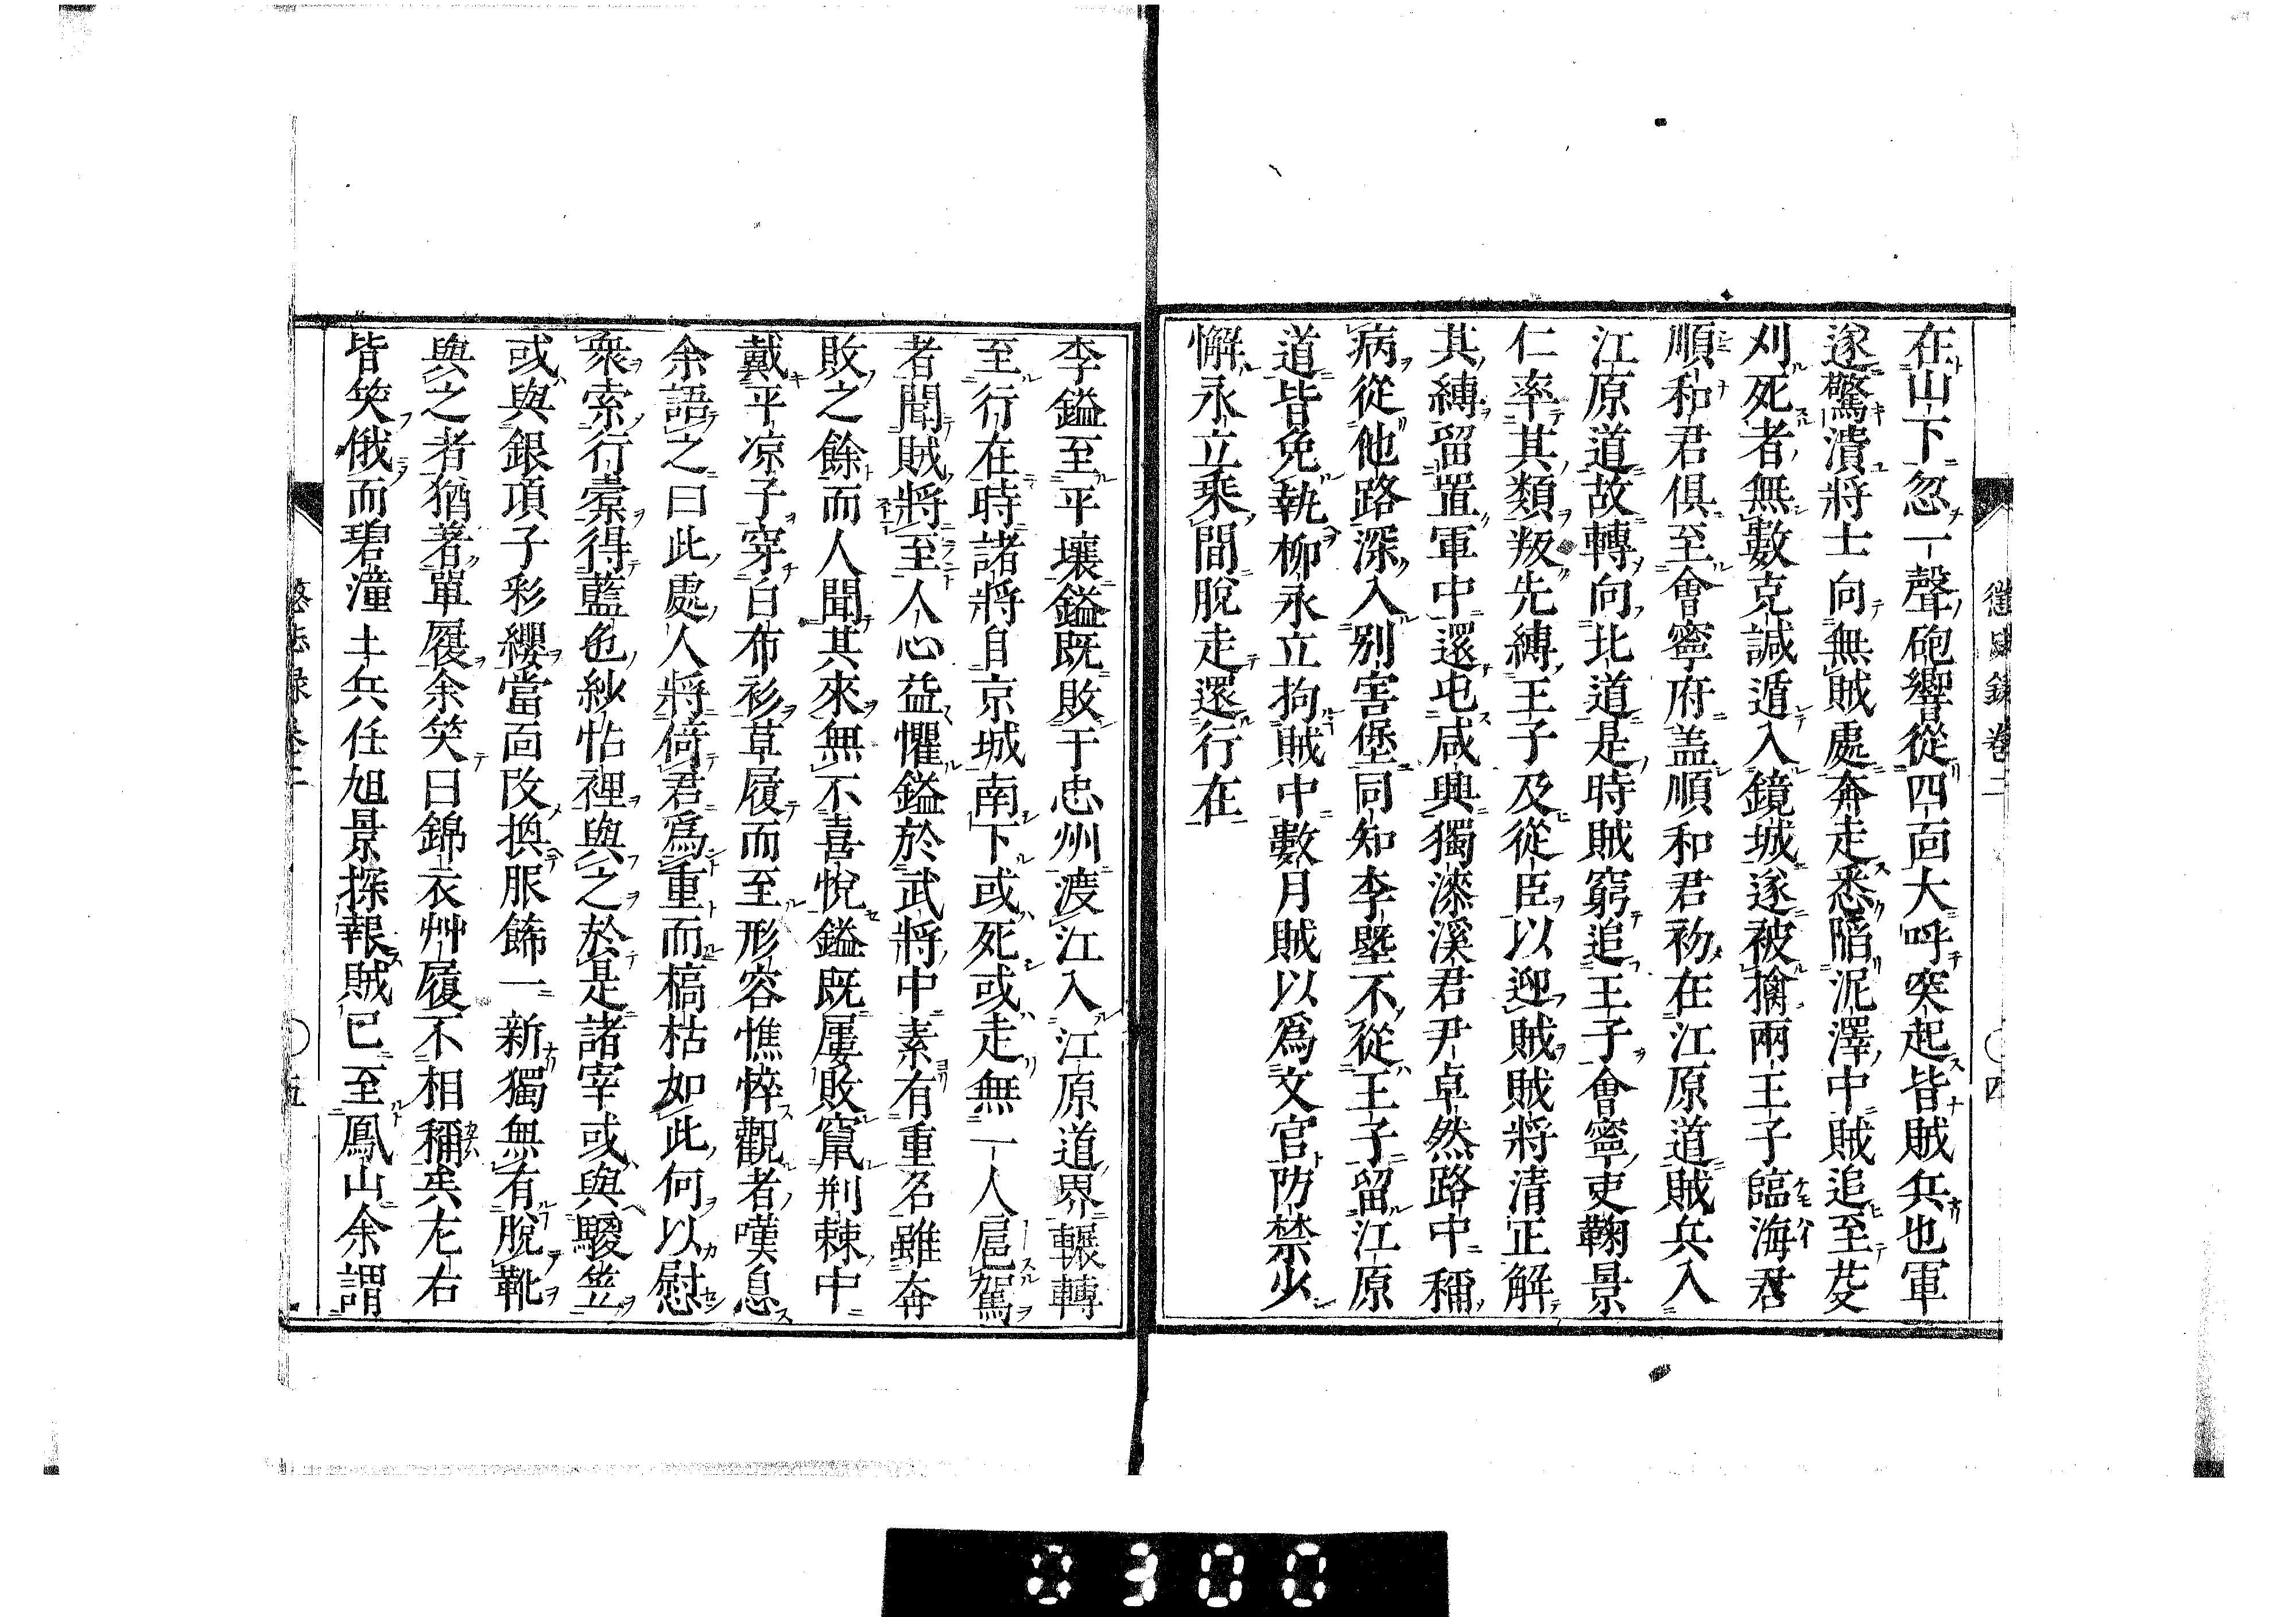 懲毖錄卷二 〇四
在山下忽一聲砲響從四面大呼突起皆賊兵也軍
遂驚潰將士向無賊處奔走悉陷泥澤中賊追至芟
刈死者無數克諴遁入鏡城遂被擒兩王子臨海君
順和君俱至會寧府盖順和君初在江原道賊兵入
江原道故轉向北道是時賊窮追王子會寧吏鞠景
仁率其類叛先縛王子及從臣以迎賊賊將清正解
其縛留置軍中還屯咸興獨漆溪君尹卓然路中稱
病從他路深入别害堡同知李塈不從王子留江原
道皆免執柳永立拘賊中數月賊以爲文官防禁少
懈永立乘間脫走還行在
李鎰至平壤鎰既敗于忠州渡江入江原道界輾轉
至行在時諸將自京城南下或死或走無一人扈駕
者聞賊將至人心益懼鎰於武將中素有重名雖奔
敗之餘而人聞其來無不喜悅鎰既屢敗竄荆棘中
戴平凉子穿白布衫草履而至形容憔悴觀者嘆息
余語之曰此處人將倚君爲重而槁枯如此何以慰
衆索行橐得藍色紗帖裡與之於是諸宰或與騣笠
或與銀項子彩纓當面改換服飾一新獨無有脫靴
與之者猶著單履余笑曰錦衣艸履不相稱矣左右
皆笑俄而碧潼土兵任旭景探報賊已至鳳山余謂
五